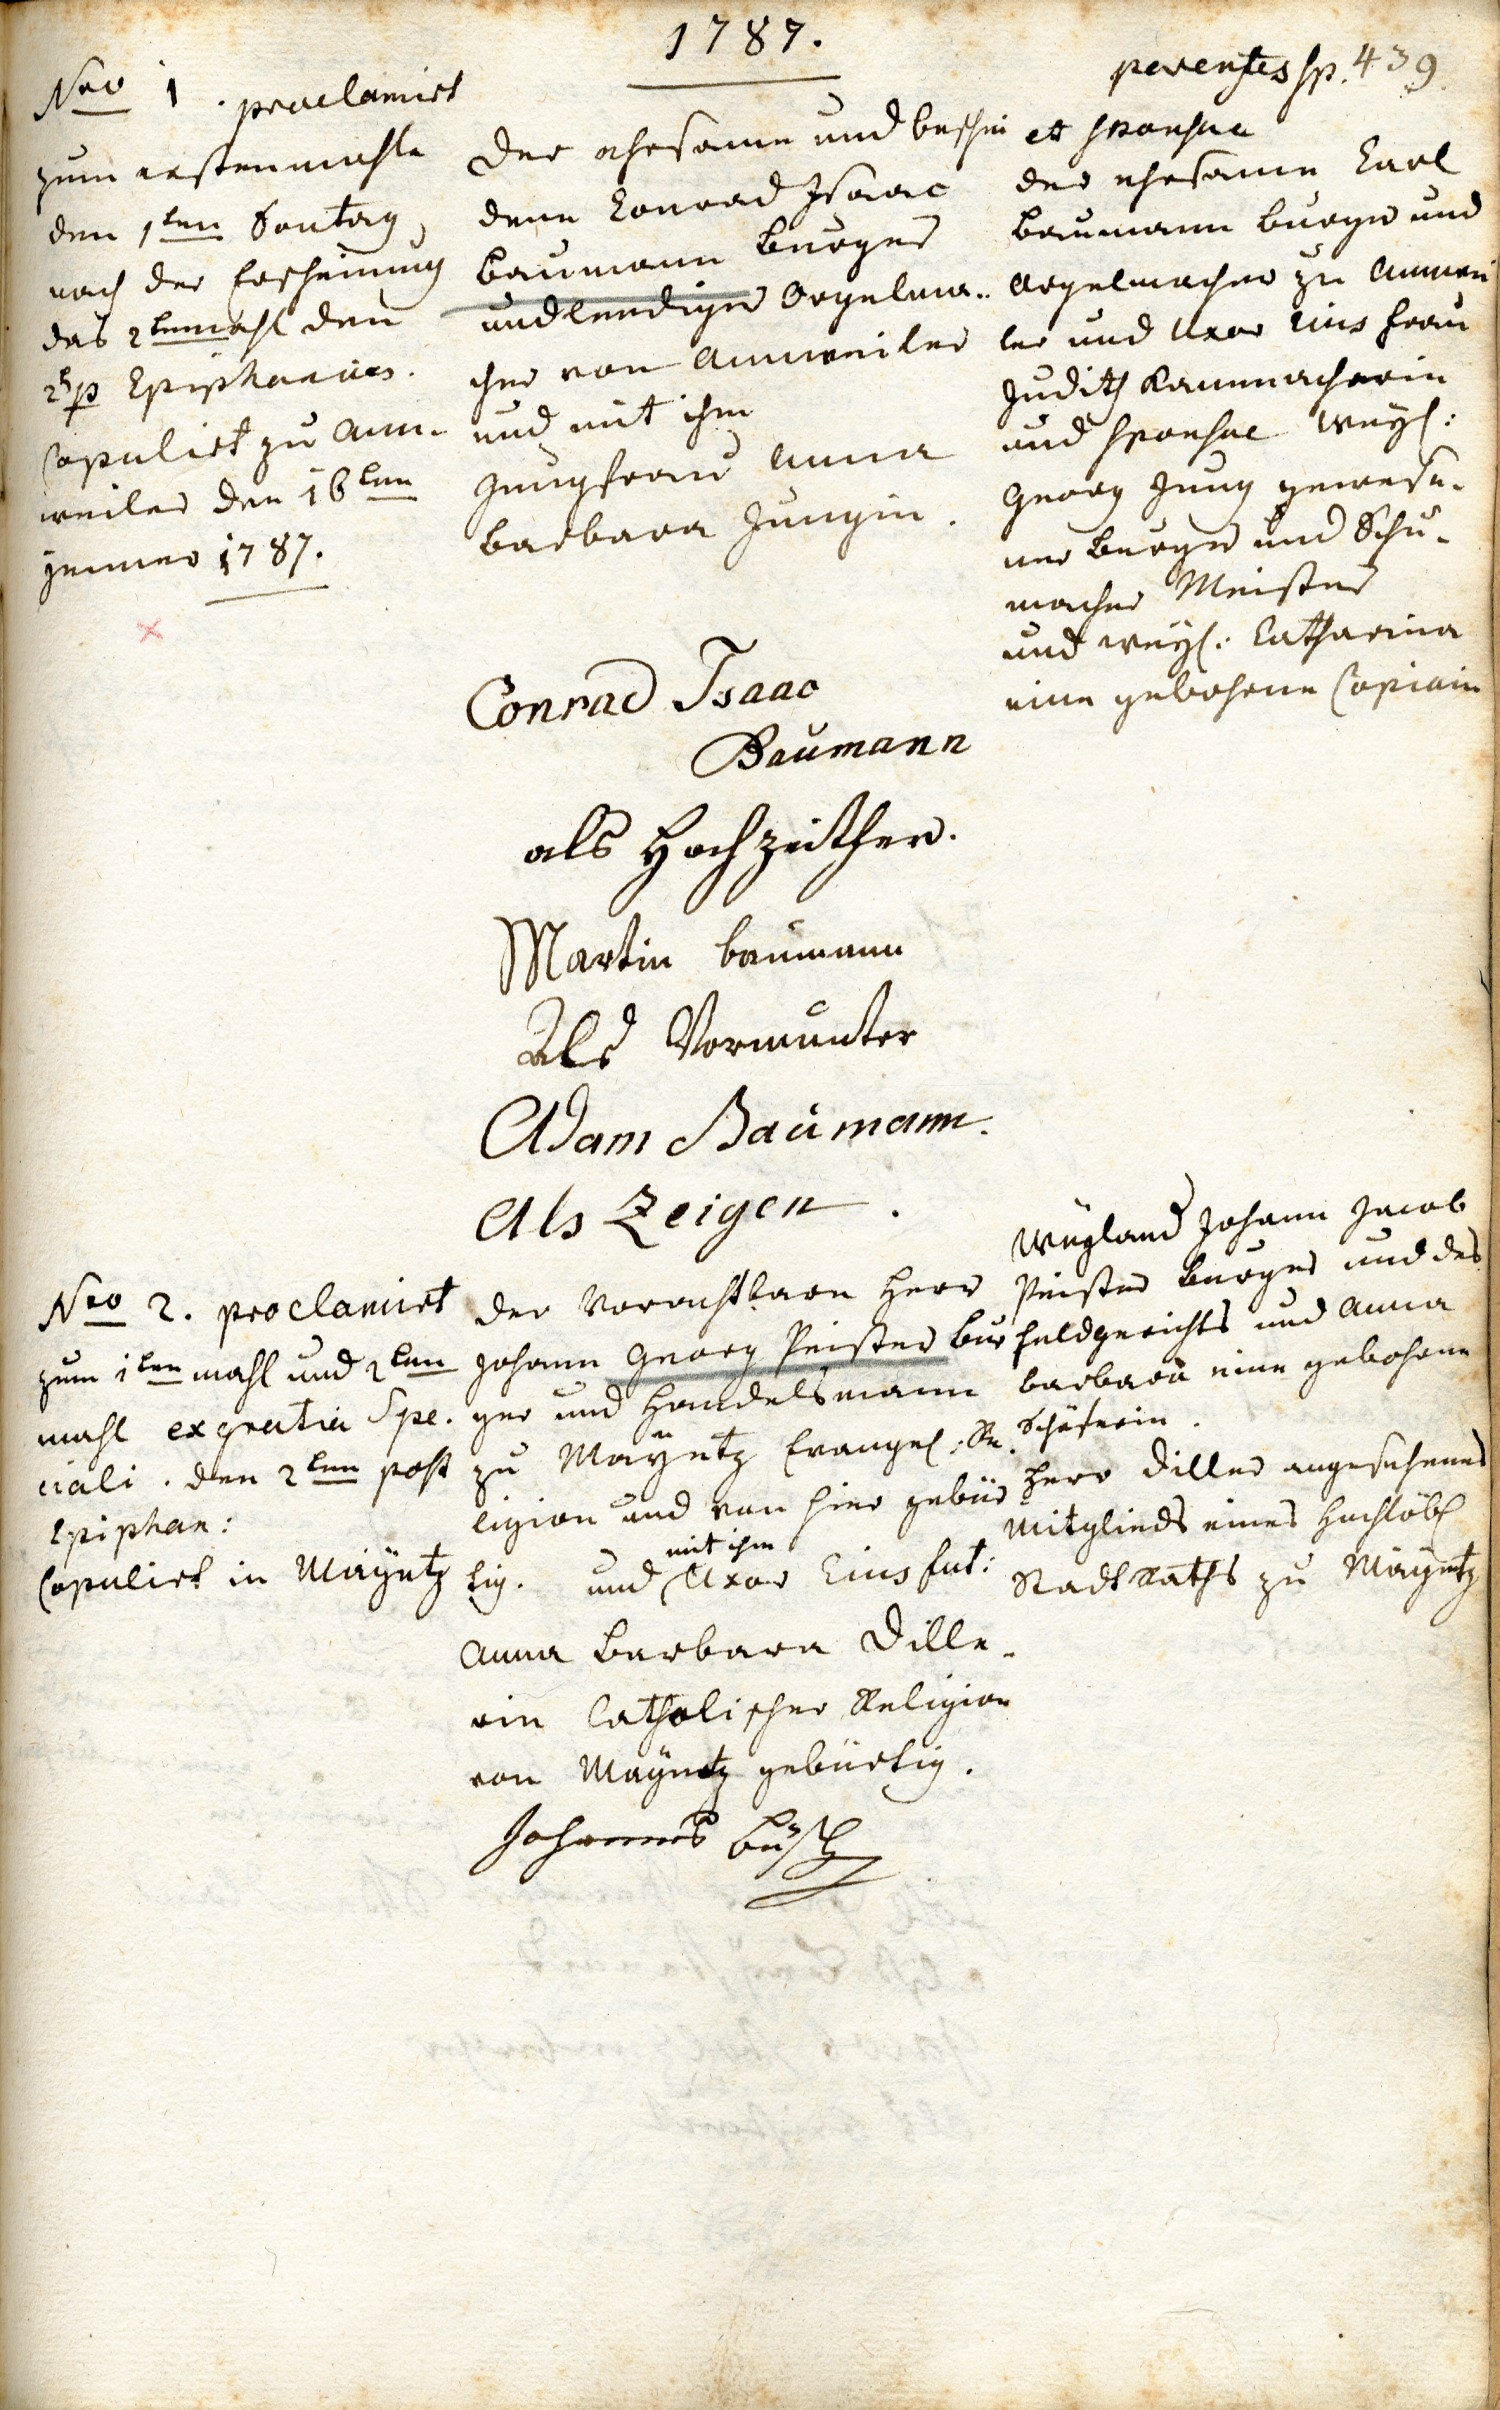 1787.
439
Nro 1. proclamirt
zum erstenmahle
den 1ten Sontag
nach der Erscheinung
das 2temahl den
2t p Epiphanias.
Copulirt zu Ann-
weiler den 16ten
Jenner 1787.
Der ehrsame und beschei
dene Conrad Isaac
Baumann Burger
und lendiger Orgelma-
cher von Annweiler
und mit ihm
Jungfrau Anna
Barbara Jungin.
parentes sp.
et sponsae
der ehrsame Carl
Baumann Burger und
Orgelmacher zu Annwei
ler und Uxor Eius Frau
Judith Kammacherin
und sponsae Weyl:
Georg Jung gewese-
ner Burger und Schu-
macher Meister
und weyl: Catharina
eine gebohrne
Conrad Isaac
Baumann
als Hochzeither.
Martin Baumann
Als Vormunter
Adam Baumann.
Als Zeigen.
Nro 2. proclamirt
zum 1ten mahl und 2ten
mahl ex gratia Spe-
ciali. den 2ten post
Epiphan:
Copulirt in Mayntz
der Vorachtbare Herr
Johann Georg Peister Bur
ger und Handelsmann
zu Mayntz Evangel: Re-
ligion und von hier gebür
tig. und mit ihm Uxor Eius fut:
Anna Barbara Dille-
rin Catholischer Religion
von Mayntz gebürtig.
Johannes Büsch
Weyland Johann Jacob
Peister Burger und des
Feldgerichts und Anna
Barbara eine gebohrne
Schäferin.
Herr Diller angesehenes
Mitglieds eines Hochlöbl
Stadt Raths zu Mayntz